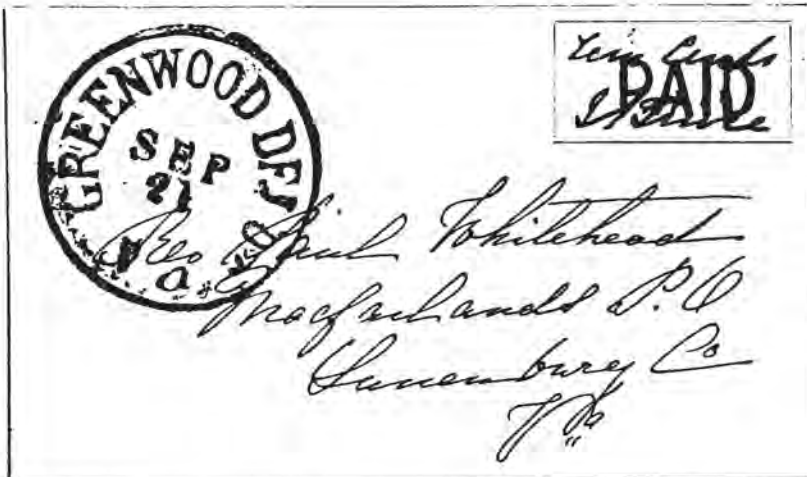 GREENWOOD
SEP
21
Va.
Ten Cents
PAID
Rev Paul Whitehead
Macfarlands P.O
Lunenburg Co
Va